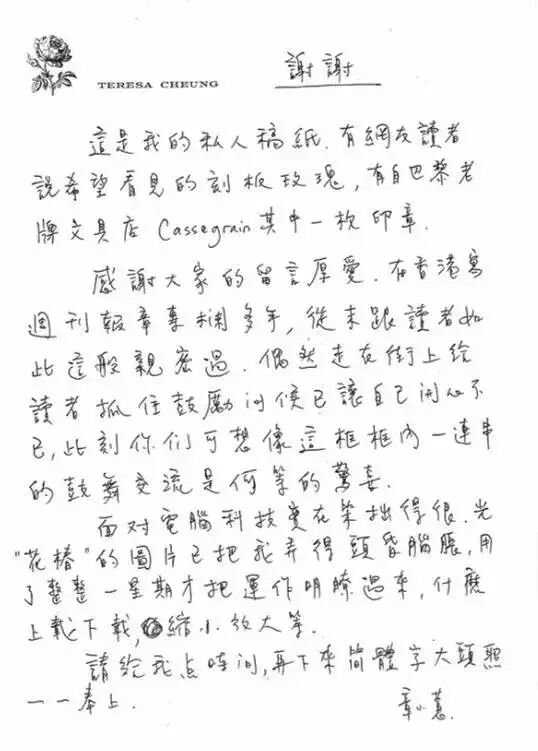 TERESA CHEUNG
謝謝
這是我的私人稿紙.有網友讀者
說希望看見的刻板玫瑰,有自巴黎老
牌文具店Cassegrain其中一枚印章.
感謝大家的留言厚愛.在香港寫
週刊報章專欄多年,從未跟讀者如
此這般親密過.偶然走在街上給
讀者抓住鼓勵问侯已讓自己闲心不
已,此刻你们可想像這框框內一連串
的鼓舞交流是何等的驚喜.
面对電腦科技實在笨拙得很.光
"花椿"的圖片已把我弄得頭昏腦脹,用
了整整一星期才把運作明瞭過來,什麽
上載下載,縮小放大等.
請给我点时间,再下來简體字大頭照
一一奉上.
章小蕙.